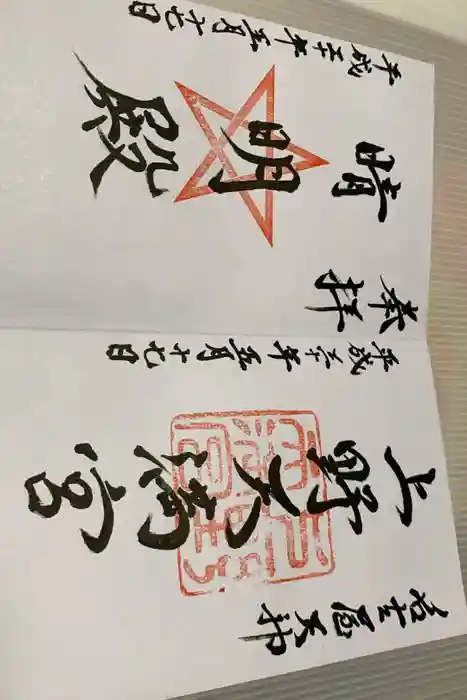 名古屋天神
上野天満宮
平成三十年五月十七日
奉拝
晴明殿
平成三十年五月十七日